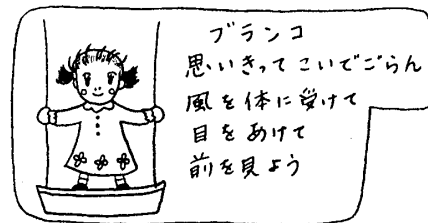 ブランコ
思いきって こいでごらん
風を体に受けて
目をあけて
前を見よう